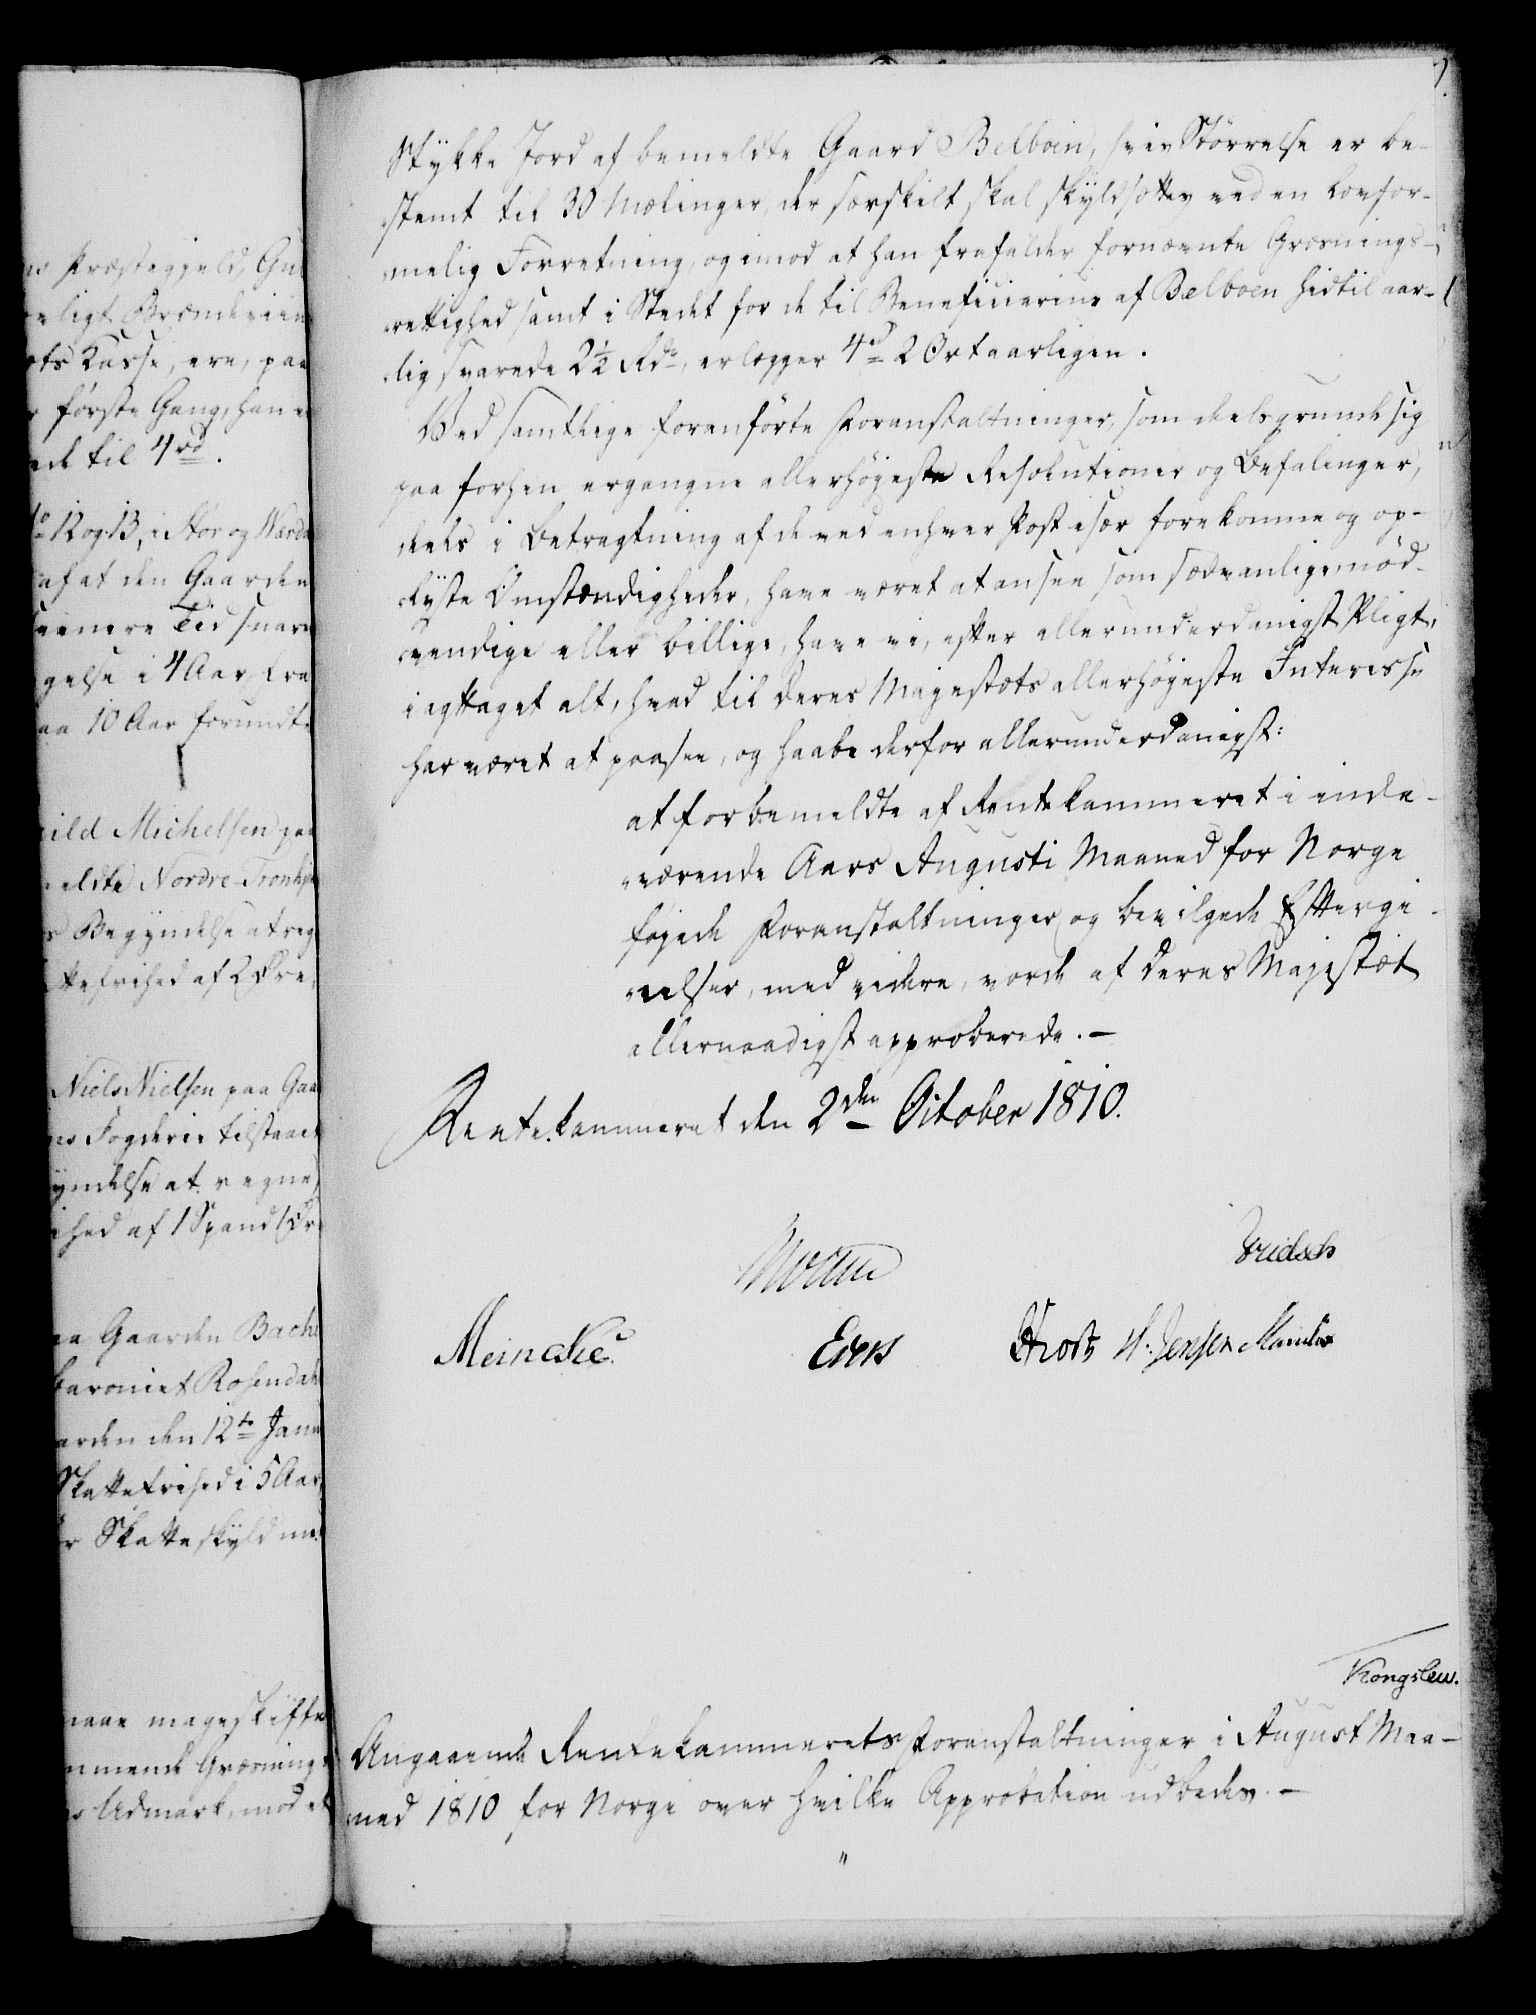 es Præstegjeld, Gul
ts Kasse, ere, paa
første Gang, han
ede til 4 rd.
No 12 og 13, i Stør og Værda
af at den Gaarden
seenere Tid svare
gelse i 4 Aar fra
aa 10 Aar forundt
ild Michelsen paa
eldte Nordre-Tronhje
s Begyndelse at reg
ttefrihed af 2 Øre,
Niels Nielsen paa Gaa
ns Fogderie tilstaaet
yndelse at regne,
ihed af 1 Spand 1 Ør
aa Gaarden Bache
Baroniet Rosendahl
arden den 12te Janu
Skattefrihed i 5 Aar,
r Skatteskyld me
maae mageskifte
mmende Græsning
s Udmark, mod et
Stykke Jord af bemeldte Gaard Belboen, hvis Størrelse er be-
stemt til 30 Mælinger, der særskilt skal skyldsættes ved en lovfor-
melig Forretning, og imod at han frafalder fornævnte Græsnings-
rettighed samt i Stedet for de til Beneficiarius af Belboen hidtil aar-
lig svarede 2½ Rdr, erlægger 4 rd 2 Ort aarligen.
Ved samtlige foranførte Foranstaltninger, som deels grunde sig
paa forhen ergangne allerhøyeste Resolutioner og Befalinger,
deels i Betragtning af de ved enhver Post især forekomne og op-
lyste Omstændigheder, have været at ansee som sædvanlige, nød-
vendige eller billige, have vi, efter allerunderdanigst Pligt,
iagttaget alt, hvad til Deres Majestæts allerhøyeste Interesse
har været at paasee, og haabe derfor allerunderdanigst:
at forbemeldte af Rentekammeret i inde-
værende Aars Augusti Maaned for Norge
føyede Foranstaltninger og bevilgede Eftergi-
velser, med videre, vorde af Deres Majestæt
allernaadigst approberede. —
Rentekammeret den 2den October 1810.
Meincke. Evers H. Jensen
Kongslew.
Angaaende Rentekammerets Foranstaltninger i August Maa-
ned 1810 for Norge over hvilke Approbation udbedes. —
"